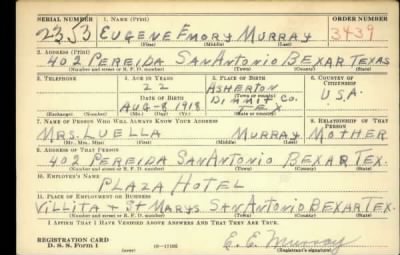 SERIAL NUMBER 1. NAME (Print) ORDER NUMBER
2353 EUGENE EMORY MURRAY 3439
(First) (Middle) (Last)
2. ADDRESS (Print)
402 PEREIDA SAN ANTONIO BEXAR TEXAS
(Number and street or R. F. D. number) (Town) (County) (State)
3. TELEPHONE 4. AGE IN YEARS 5. PLACE OF BIRTH 6. COUNTRY OF CITIZENSHIP
22 ASHERTON
DIMMIT CO. U.S.A.
DATE OF BIRTH (Town or county)
AUG-8 1918 TEX
(Exchange) (Number) (Mo.) (Day) (Yr.) (State or country)
7. NAME OF PERSON WHO WILL ALWAYS KNOW YOUR ADDRESS 8. RELATIONSHIP OF THAT PERSON
MRS. LUELLA MURRAY MOTHER
(Mr., Mrs., Miss) (First) (Middle) (Last)
9. ADDRESS OF THAT PERSON
402 PEREIDA SAN ANTONIO BEXAR TEX.
(Number and street or R. F. D. number) (Town) (County) (State)
10. EMPLOYER'S NAME
PLAZA HOTEL
11. PLACE OF EMPLOYMENT OR BUSINESS
VILLITA & ST MARYS SAN ANTONIO BEXAR TEX.
(Number and street or R. F. D. number) (Town) (County) (State)
I AFFIRM THAT I HAVE VERIFIED ABOVE ANSWERS AND THAT THEY ARE TRUE.
REGISTRATION CARD
D. S. S. Form 1 (over) 16—17105 E. E. Murray
(Registrant's signature)